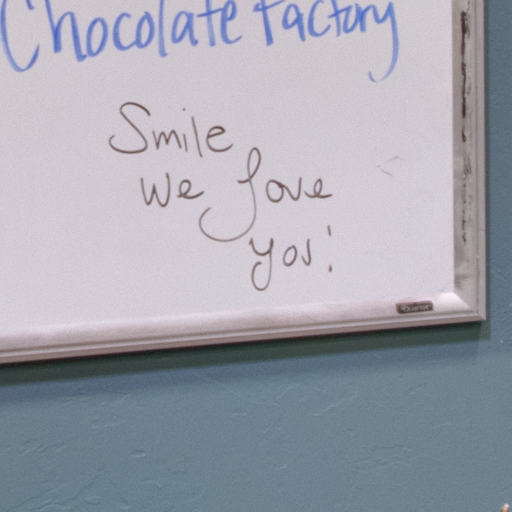 Chocolate Factory
Smile
we love
you!
Quartet